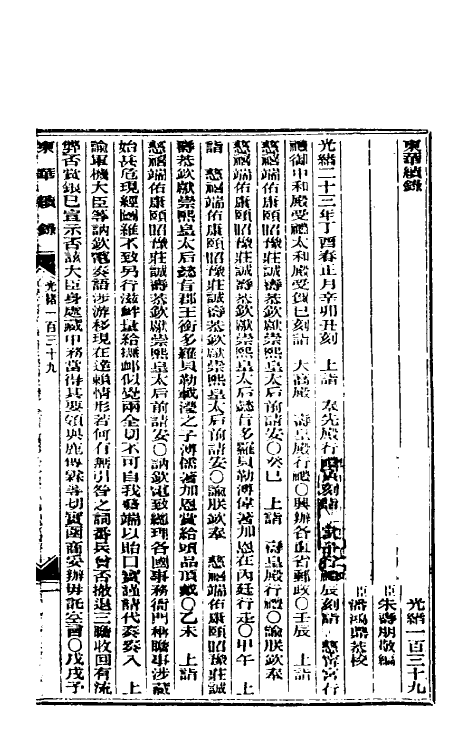 東華續錄
光緒一百三十九
臣朱壽朋敬編
臣潘鴻鼎恭校
光緒二十三年丁酉春正月辛卯丑刻　上詣　奉先殿行禮寅刻詣　辰刻詣　慈寧宮行
禮御中和殿受禮太和殿受賀巳刻詣　大高殿　壽皇殿行禮〇興辦各直省郵政〇壬辰　上詣
慈禧端佑康頤昭豫莊誠壽恭欽獻崇熙皇太后前請安〇癸巳　上詣　壽皇殿行禮〇諭朕欽奉
慈禧端佑康頤昭豫莊誠壽恭欽獻崇熙皇太后懿旨多羅貝勒溥偉著加恩在內廷行走〇甲午　上
詣　慈禧端佑康頤昭豫莊誠壽恭欽獻崇熙皇太后前請安〇諭朕欽奉　慈禧端佑康頤昭豫莊誠
壽恭欽獻崇熙皇太后懿旨郡王銜多羅貝勒載瀅之子溥僡著加恩賞給頭品頂戴〇乙未　上詣
慈禧端佑康頤昭豫莊誠壽恭欽獻崇熙皇太后前請安〇訥欽電致總理各國事務衙門稱瞻事涉藏
始甚危現經國雖不致另行滋衅量給撫卹似覺兩全切不可自我發端以貽口實謹請代奏奏入　上
諭軍機大臣等訥欽電奏語涉游移現在達賴情形若何有無引咎之詞番民曾否撤退三瞻收回有流
弊否賞銀已宣示否該大臣身處藏中務當得其要領與鹿傳霖等切實函商妥辦毋託空言〇戊戌子
東華續錄
光緒一百三十九